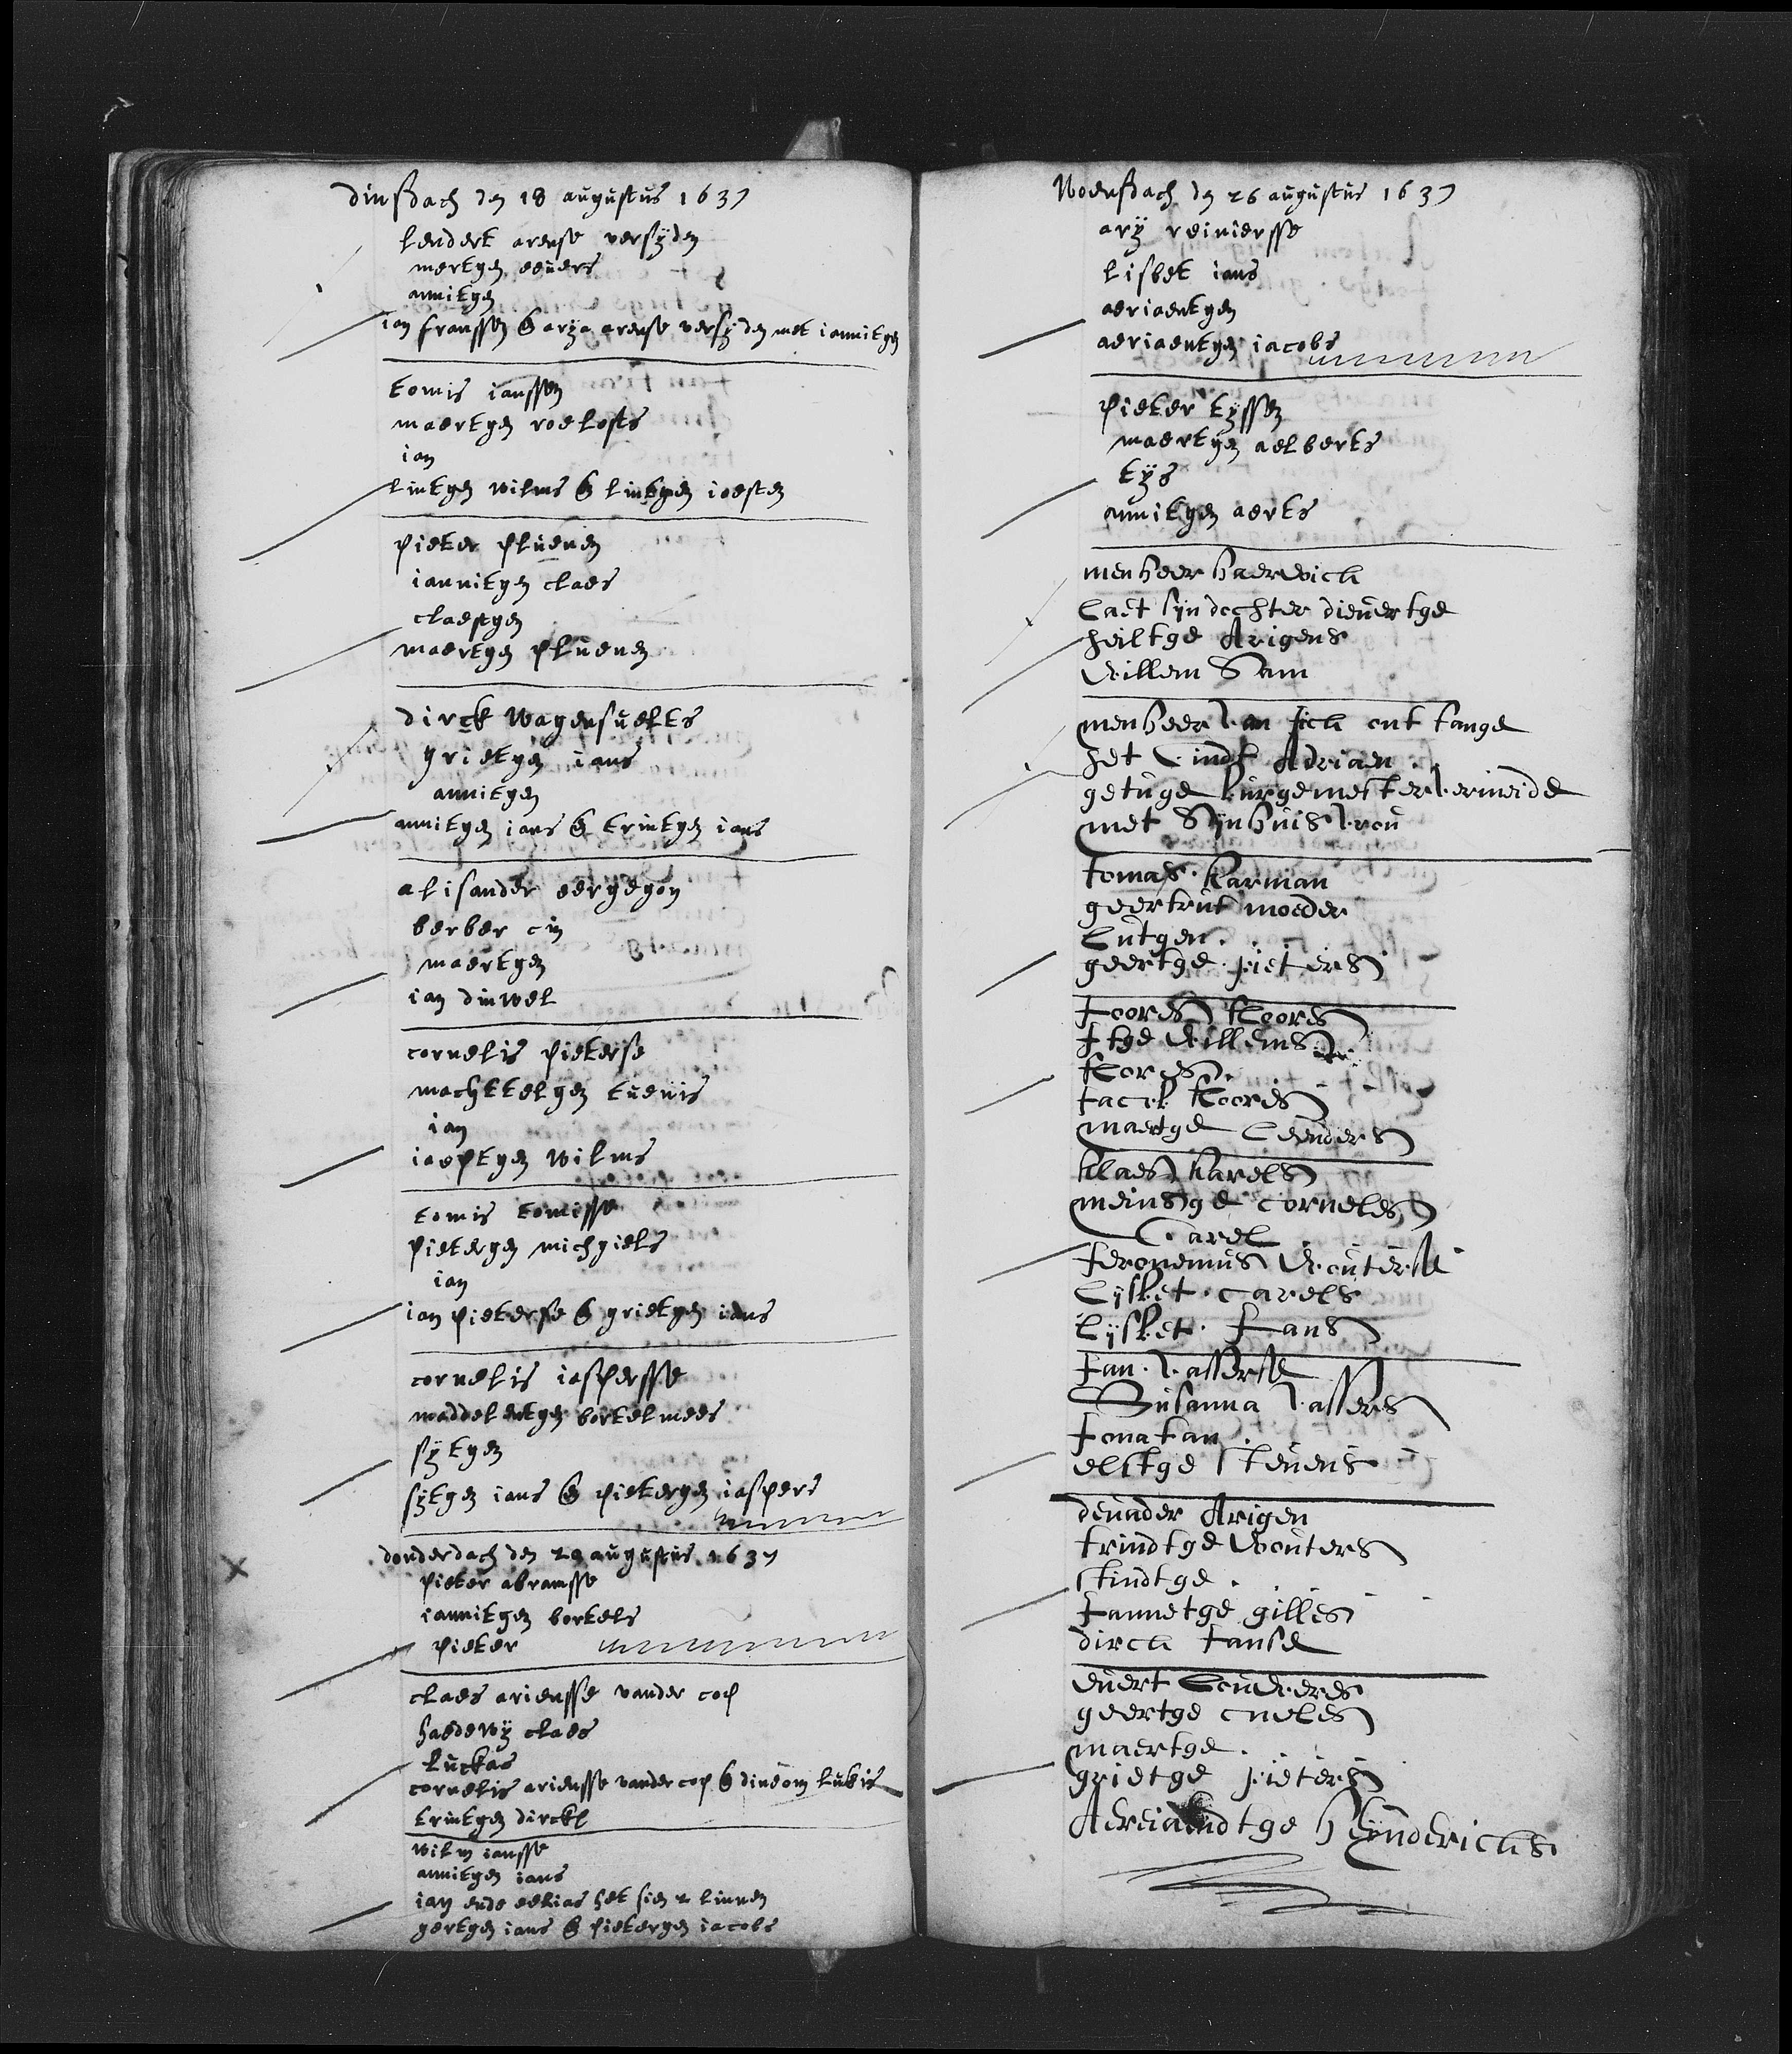 dinsdach den 18 augustus 1637
lendert arense versijden
mertgen eeuers
annitgen
ian franssen & arija arense versijden met iannitgen
tomis ianssen
maertgen roelofts
ian
lintgen wilms & lintgen ioesten
pieter pluenen
iannitgen claes
claestgen
maertgen pluenen
dirck wagensuelts
grietgen ians
annitgen
annitgen ians & trintgen ians
alisander eergegon
berber cin
maertgen
ian dinwel
cornelis pieterse
machttelgen tuenis
ian
iaeptgen wilms
tomis tomisse
pietergen michgiels
ian
ian pieterse & grietgen ians
cornelis iaspersse
maddelentgen bortelmees
sijtgen
sijtgen ians & pietergen iaspers
donderdach den 20 augustus 1637
pieter abramsse
iannitgen bortels
pieter
claes ariensse vander cop
haedewij claes
luckas
cornelis ariensse vander cop & dineom lukis
trintgen dircks
wilm iansse
annitgen ians
ian ende eelias het sien 2 linnen
gertgen ians & pietergen iacobs
Woensdach den 26 augustus 1637
arij reiniersse
lisbet ians
aeriaentgen
aeriaentgen iacobs
pieter tijssen
maertgen aelberts
tijs
annitgen aerts
menheer haerwick
laet sijn dochter dieuertge
heiltge Arigens
willem Sam
menheer van ont fange
het kindt Adriaen
getuge burgemester vermeide
met Sijn huisvrou
tomas harman
geertrut moeder
lutgen
geertge pieters
Joores kloores
Jtge willems
klores
Jacob kloores
maertge leenders
klaes karels
meinsge corneles
Carel
Jeronemus wouterse
Lijsbet carels
lijsbet Jans
Jan vasserse
Susanna vassers
Jonatan
elstge steuens
deunder Arigen
trindtge wouters
stindtge
Jannetge gilles
dirck Janse
euert louweres
geertge cneles
maertge
grietge pieters
Aereiaendtge heijnderichs